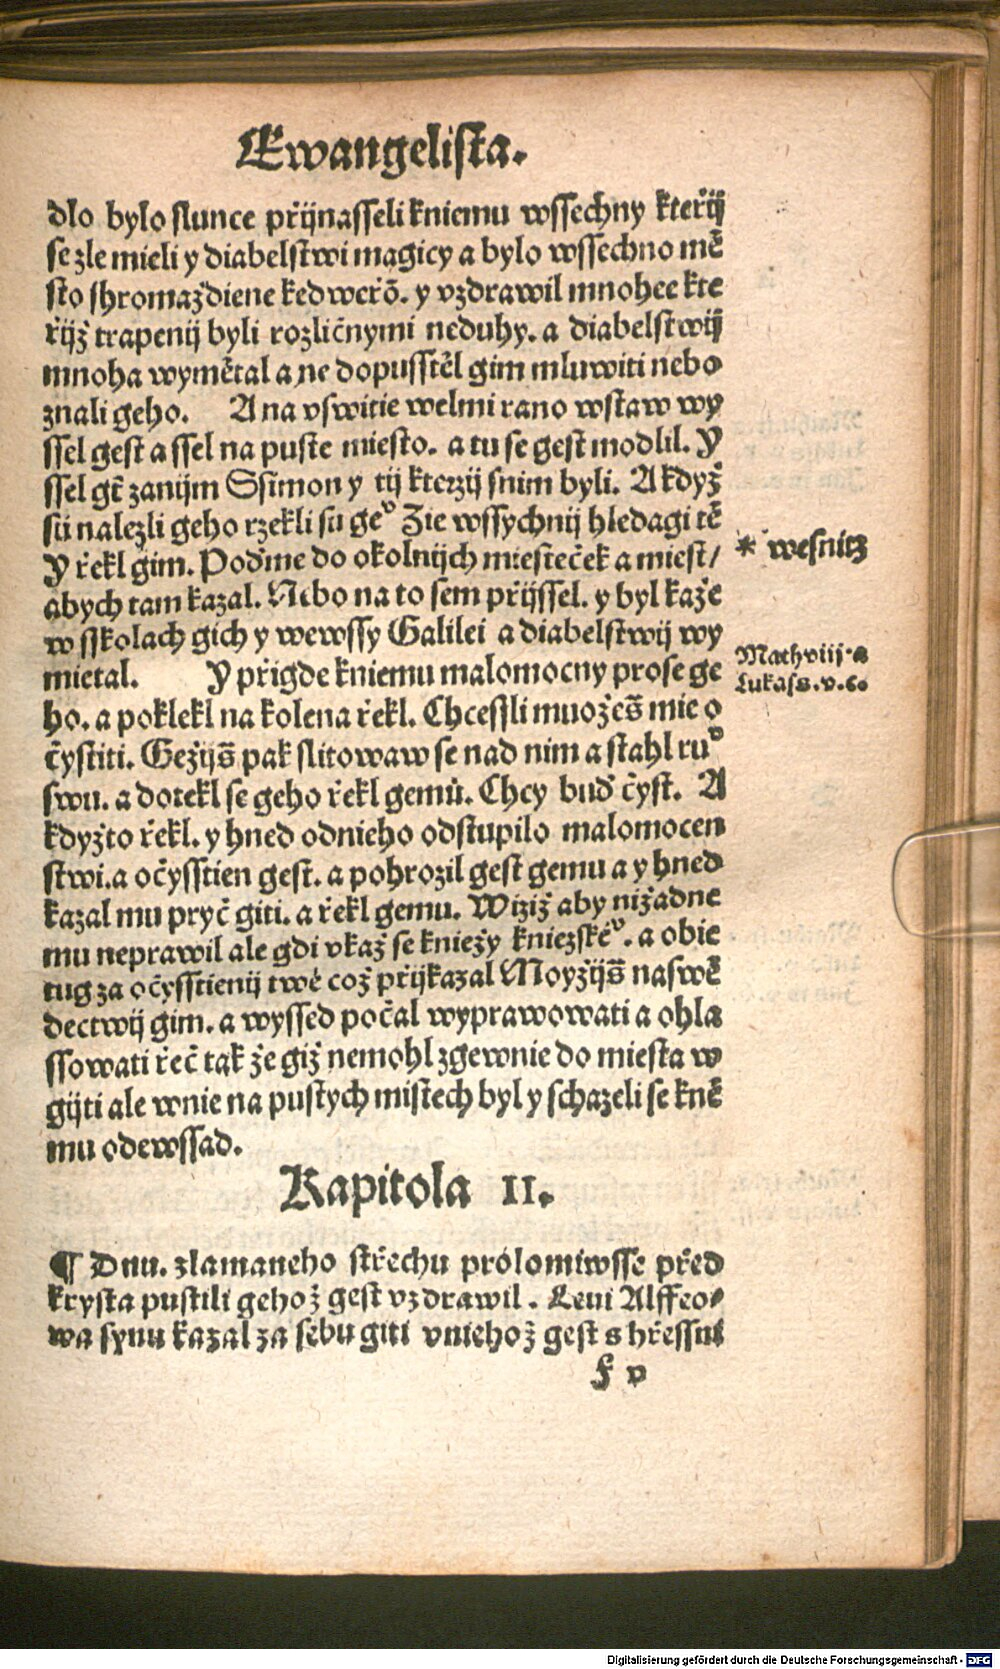 Ewangelista.
dlo bylo slunce přijnasseli kniemu wssechny kteřij
se zle mieli y diabelstwi magicy a bylo wssechno mě
sto shromaždiene kedweřō. y vzdrawil mnohee kte
řijž trapenij byli rozličnymi neduhy. a diabelstwij
mnoha wymětal a ne dopusstěl gim mluwiti nebo
znali geho. A na vswitie welmi rano wstaw wy
ssel gest a ssel na puste miesto. a tu se gest modlil. Y
ssel gt̄ zanijm Ssimon y tij kterzij snim byli. A když
sů nalezli geho rzekli su geͮ Zie wssychnij hledagi tě
Y řekl gim. Poďme do okolnijch miesteček a miest/
abych tam kazal. Nebo na to sem přijssel. y byl kaže
w sskolach gich y wewssy Galilei a diabelstwij wy
mietal. Y přigde kniemu malomocny prose ge
ho. a poklekl na kolena řekl. Chcessli muožeš mie o
čystiti. Gežijš pak slitowaw se nad nim a stahl ruͮ
swu. a dotekl se geho řekl gemů. Chcy buď čyst. A
kdyžto řekl. y hned odnieho odstupilo malomocen
stwi. a očysstien gest. a pohrozil gest gemu a y hned
kazal mu pryč giti. a řekl gemu. Wiziž aby nižadne
mu neprawil ale gdi vkaž se kniežy kniezskéͮ. a obie
tug za očysstienij twé což přijkazal Moyžijš naswě
dectwij gim. a wyssed počal wyprawowati a ohla
ssowati řeč tak že giž nemohl zgewnie do miesta w
gijti ale wnie na pustych mistech byl y schazeli se kně
mu odewssad.
* wesnitz
Math viij. a
Lukass. v. c.
Kapitola II.
¶ Dnu. zlamaneho střechu prolomiwsse před
krysta pustili gehož gest vzdrawil. Leui Alffeo⸗
wa synu kazal za sebu giti vniehož gest s hřessni
f v
Digitalisierung gefördert durch die Deutsche Forschungsgemeinschaft - DFG